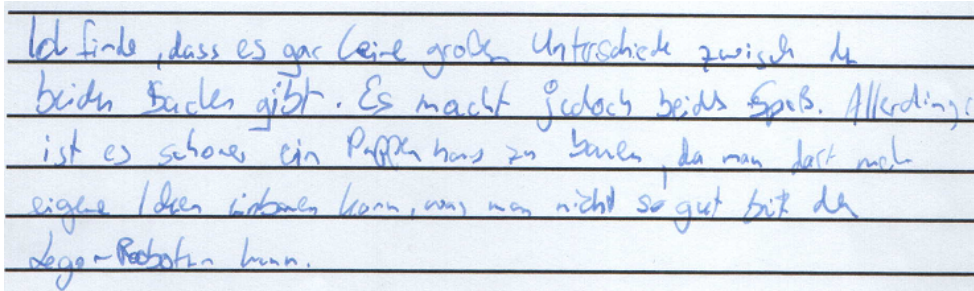 Ich finde, dass es gar keine großen Unterschiede zwischen den
beiden Sachen gibt. Es macht jedoch beides Spaß. Allerdings
ist es schöner ein Puppenhaus zu bauen, da man dort mehr
eigene Ideen einbauen kann, was man nicht so gut bei den
Lego-Robotern kann.